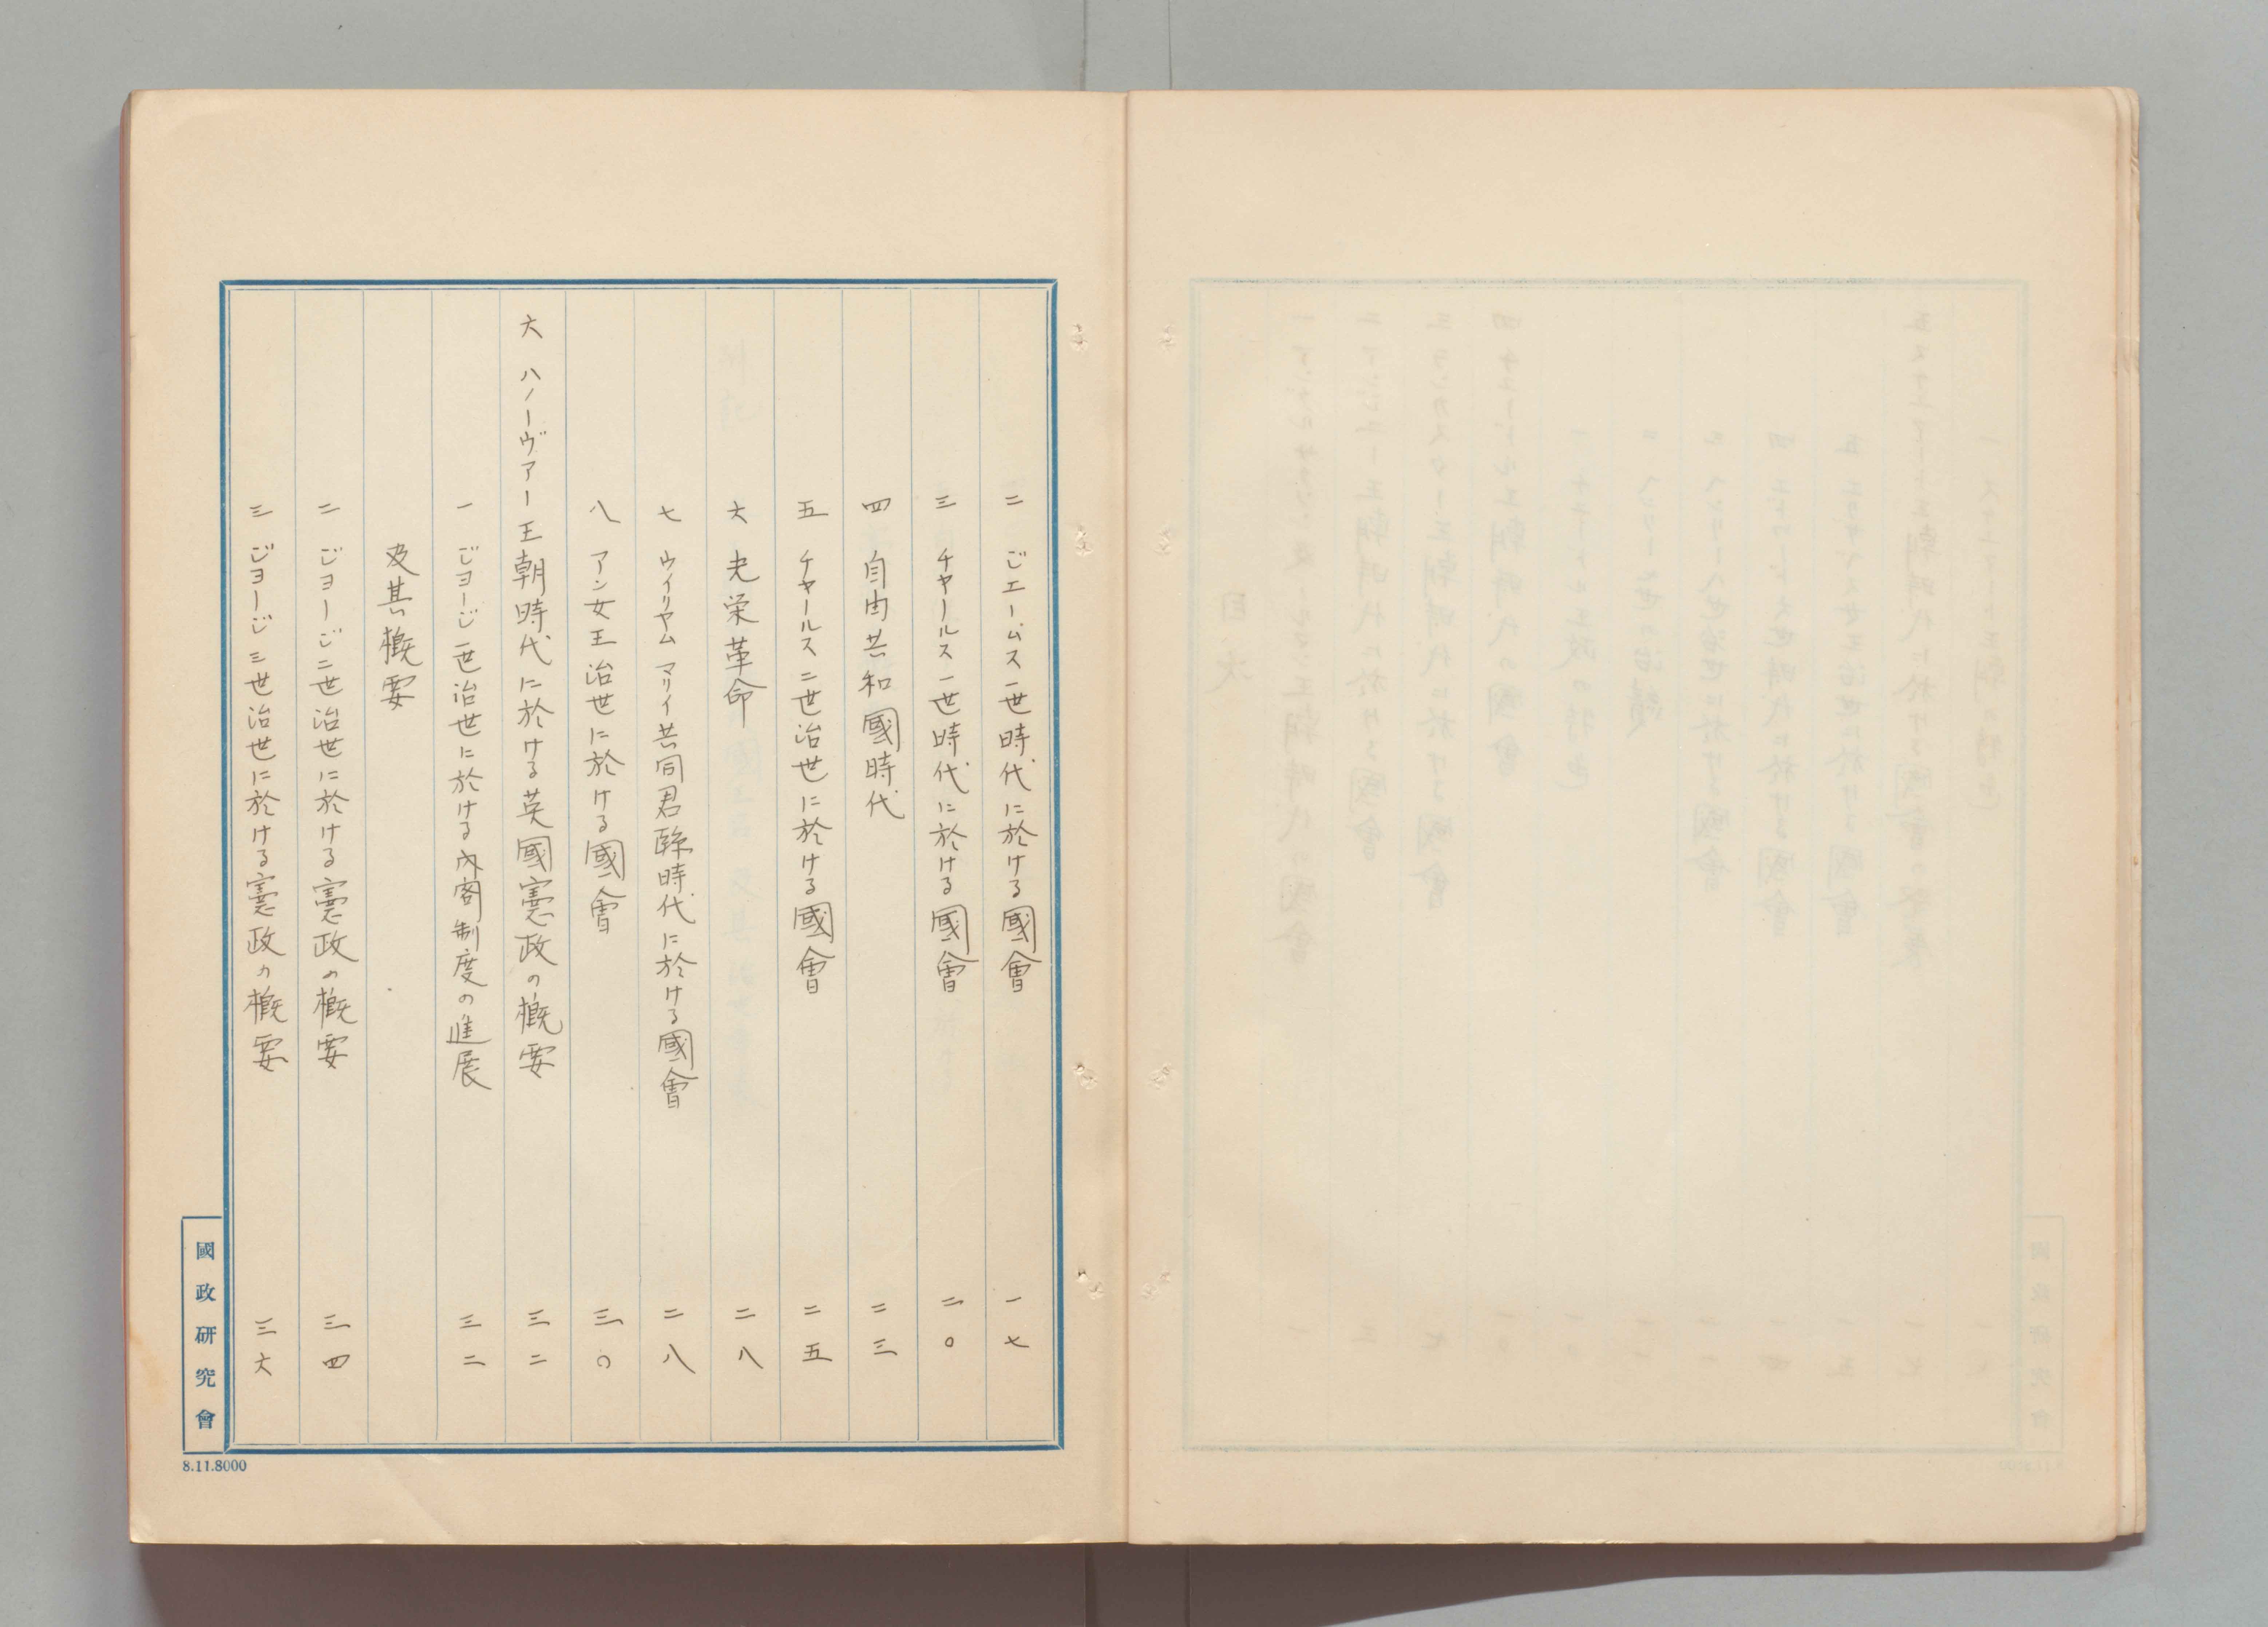 二 ジエームス一世時代に於ける國會 一七
三 チャールス一世時代に於ける國會 二〇
四 自由共和國時代 二三
五 チャールス二世治世に於ける國會 二五
六 光栄革命 二八
七 ウイリヤム マリイ共同君臨時代に於ける國會 二八
八 アン女王治世に於ける國會 三〇
六 ハノーヴァー王朝時代に於ける英國憲政の概要 三二
一 ジヨージ一世治世に於ける内閣制度の進展 三二
及其概要
二 ジヨージ二世治世に於ける憲政の概要 三四
三 ジヨージ三世治世に於ける憲政の概要 三六
國政研究會
8.11.8000